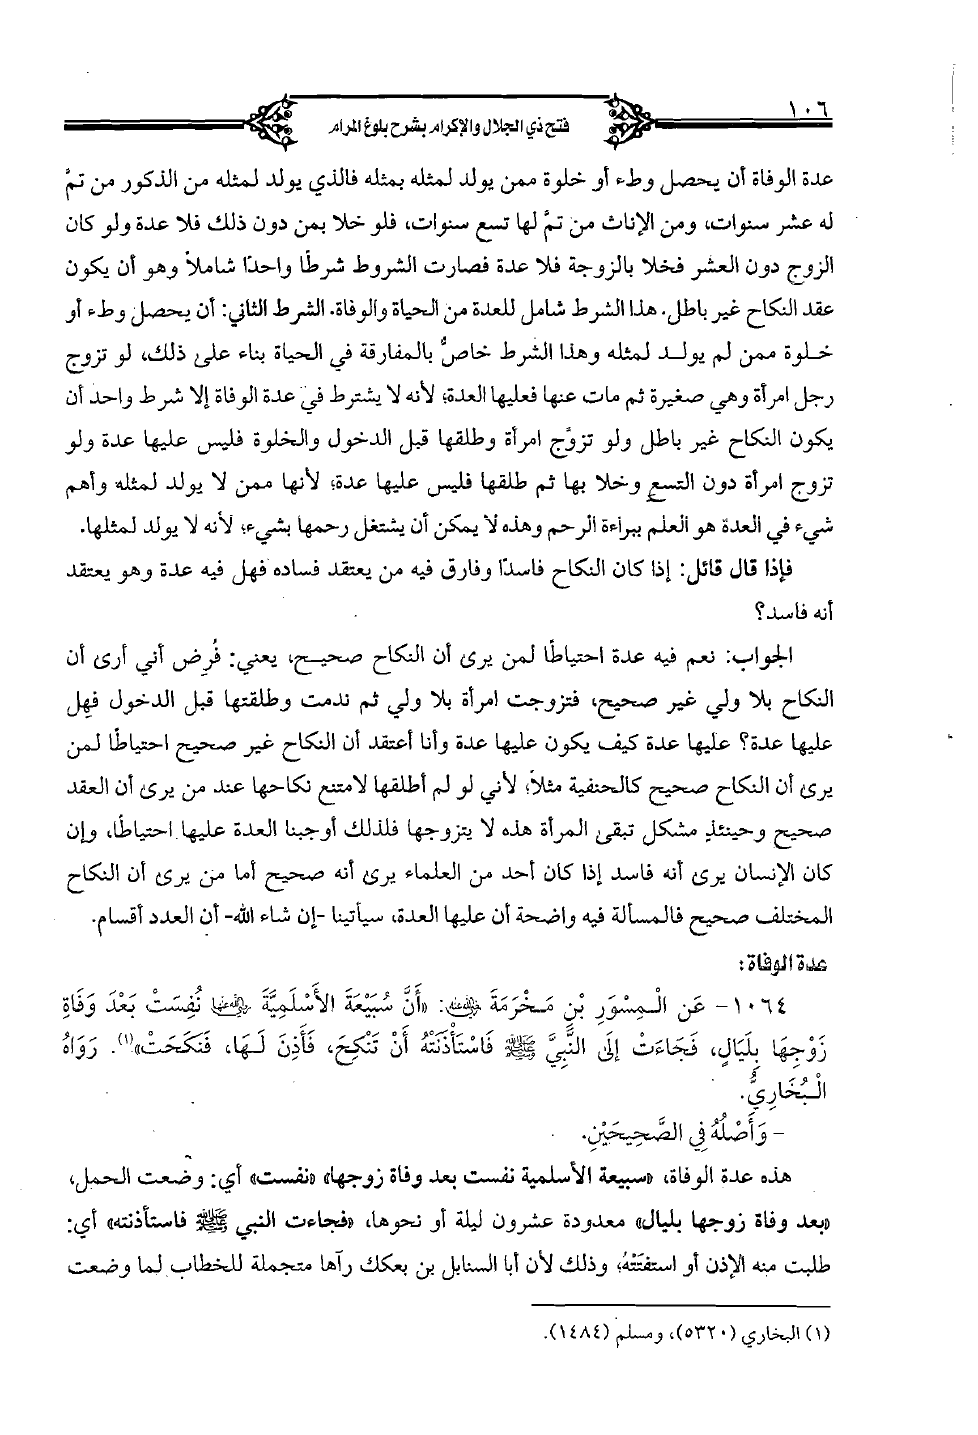 ١٠٦
فتح ذي الجلال والإكرام بشرح بلوغ المرام
عدة الوفاة أن يحصل وطء أو خلوة ممن يولد لمثله بمثله فالذي يولد لمثله من الذكور من تمَّ
له عشر سنوات، ومن الإناث من تمَّ لها تسع سنوات، فلو خلا بمن دون ذلك فلا عدة ولو كان
الزوج دون العشر فخلا بالزوجة فلا عدة فصارت الشروط شرطًا واحدًا شاملاً وهو أن يكون
عقد النكاح غير باطل. هذا الشرط شامل للعدة من الحياة والوفاة. الشرط الثاني: أن يحصل وطء أو
خلوة ممن لم يولد لمثله وهذا الشرط خاصٌّ بالمفارقة في الحياة بناء على ذلك، لو تزوج
رجل امرأة وهي صغيرة ثم مات عنها فعليها العدة؛ لأنه لا يشترط في عدة الوفاة إلا شرط واحد أن
يكون النكاح غير باطل ولو تزوَّج امرأة وطلقها قبل الدخول والخلوة فليس عليها عدة ولو
تزوج امرأة دون التسع وخلا بها ثم طلقها فليس عليها عدة؛ لأنها ممن لا يولد لمثله وأهم
شيء في العدة هو العلم ببراءة الرحم وهذه لا يمكن أن يشتغل رحمها بشيء؛ لأنه لا يولد لمثلها.
فإذا قال قائل: إذا كان النكاح فاسدًا وفارق فيه من يعتقد فساده فهل فيه عدة وهو يعتقد
أنه فاسد؟
الجواب: نعم فيه عدة احتياطًا لمن يرى أن النكاح صحيح، يعني: فُرِض أني أرى أن
النكاح بلا ولي غير صحيح، فتزوجت امرأة بلا ولي ثم ندمت وطلقتها قبل الدخول فهل
عليها عدة؟ عليها عدة كيف يكون عليها عدة وأنا أعتقد أن النكاح غير صحيح احتياطًا لمن
يرى أن النكاح صحيح كالحنفية مثلاً؛ لأني لو لم أطلقها لامتنع نكاحها عند من يرى أن العقد
صحيح وحينئذٍ مشكل تبقى المرأة هذه لا يتزوجها فلذلك أوجبنا العدة عليها احتياطًا، وإن
كان الإنسان يرى أنه فاسد إذا كان أحد من العلماء يرى أنه صحيح أما من يرى أن النكاح
المختلف صحيح فالمسألة فيه واضحة أن عليها العدة، سيأتينا -إن شاء الله- أن العدد أقسام.
عدة الوفاة:
١٠٦٤- عَنِ الْمِسْوَرِ بْنِ مَخْرَمَةَ رضي الله عنه: «أَنَّ سُبَيْعَةَ الأَسْلَمِيَّةَ رضي الله عنها نُفِسَتْ بَعْدَ وَفَاةِ
زَوْجِهَا بِلَيَالٍ، فَجَاءَتْ إِلَى النَّبِيَّ ﷺ فَاسْتَأْذَنَتْهُ أَنْ تَنْكِحَ، فَأَذِنَ لَهَا، فَنَكَحَتْ»(١). رَوَاهُ
الْبُخَارِيُّ.
- وَأَصْلُهُ فِي الصَّحِيحَيْنِ.
هذه عدة الوفاة، «سبيعة الأسلمية نفست بعد وفاة زوجها» «نفست» أي: وضعت الحمل،
«بعد وفاة زوجها بليال» معدودة عشرون ليلة أو نحوها، «فجاءت النبي ﷺ فاستأذنته» أي:
طلبت منه الإذن أو استفتَتْهُ؛ وذلك لأن أبا السنابل بن بعكك رآها متجملة للخطاب لما وضعت
(١) البخاري (٥٣٢٠)، ومسلم (١٤٨٤).